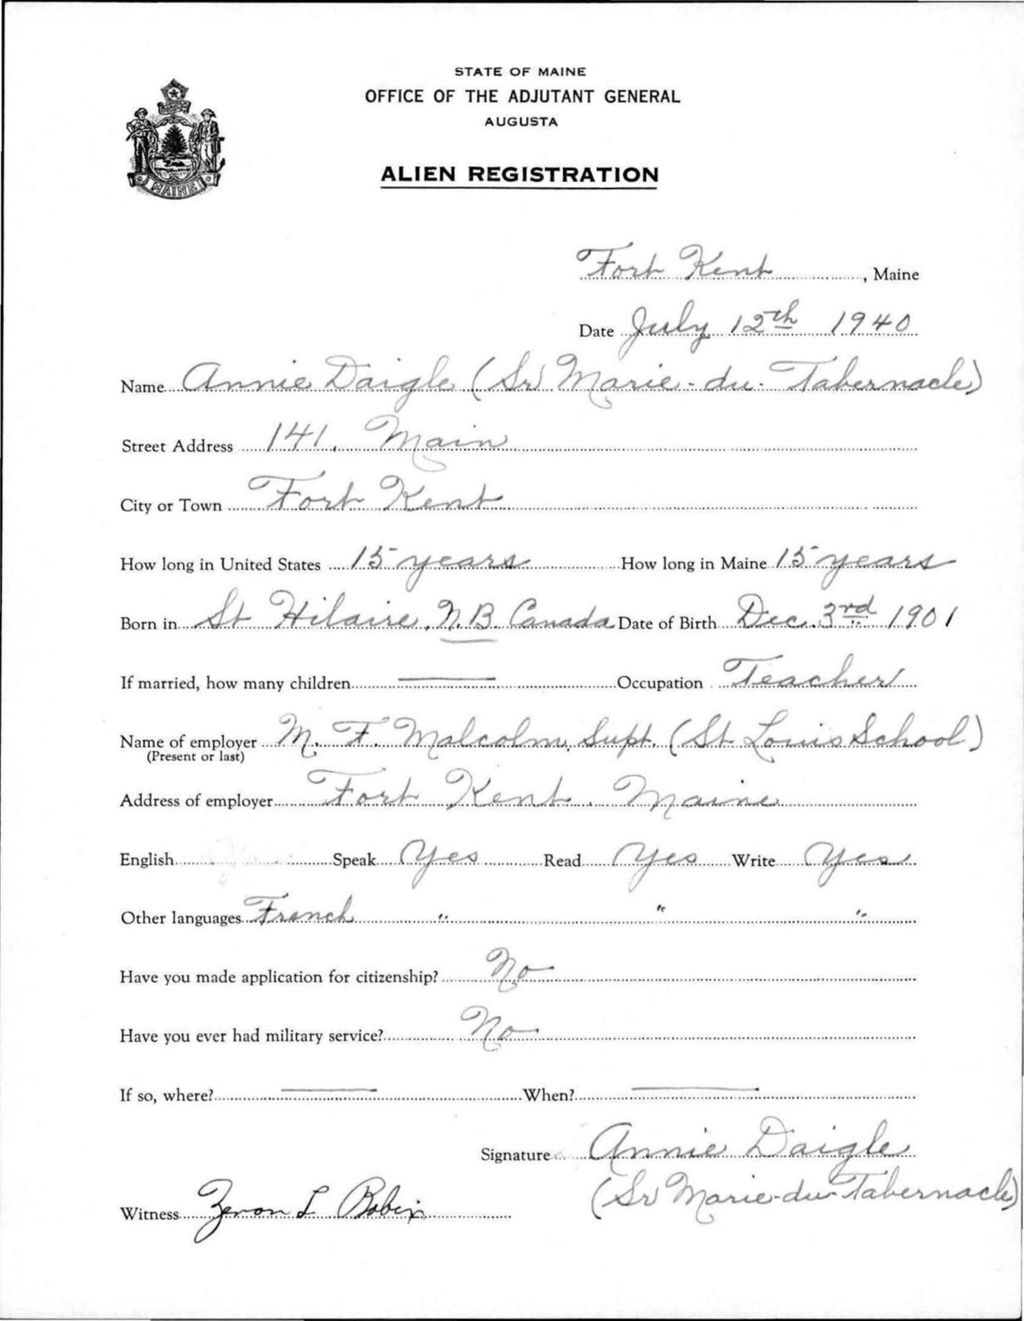 STATE OF MAINE
OFFICE OF THE ADJUTANT GENERAL
AUGUSTA
ALIEN REGISTRATION
MAINE
Fort Kent, Maine
Date July 12th 1940
Name Annie Daigle (Sr Marie-du-Tabernacle)
Street Address 141, Main
City or Town Fort Kent
How long in United States 15 years How long in Maine 15 years
Born in St Hilaire, N.B. Canada Date of Birth Dec. 3rd 1901
If married, how many children — Occupation Teacher
Name of employer M. F. Malcolm, Supt. (St Louis School)
(Present or last)
Address of employer Fort Kent, Maine
English Speak Yes Read Yes Write Yes
Other languages French " " "
Have you made application for citizenship? No
Have you ever had military service? No
If so, where? — When? —
Signature Annie Daigle
(Sr Marie-du-Tabernacle)
Witness L